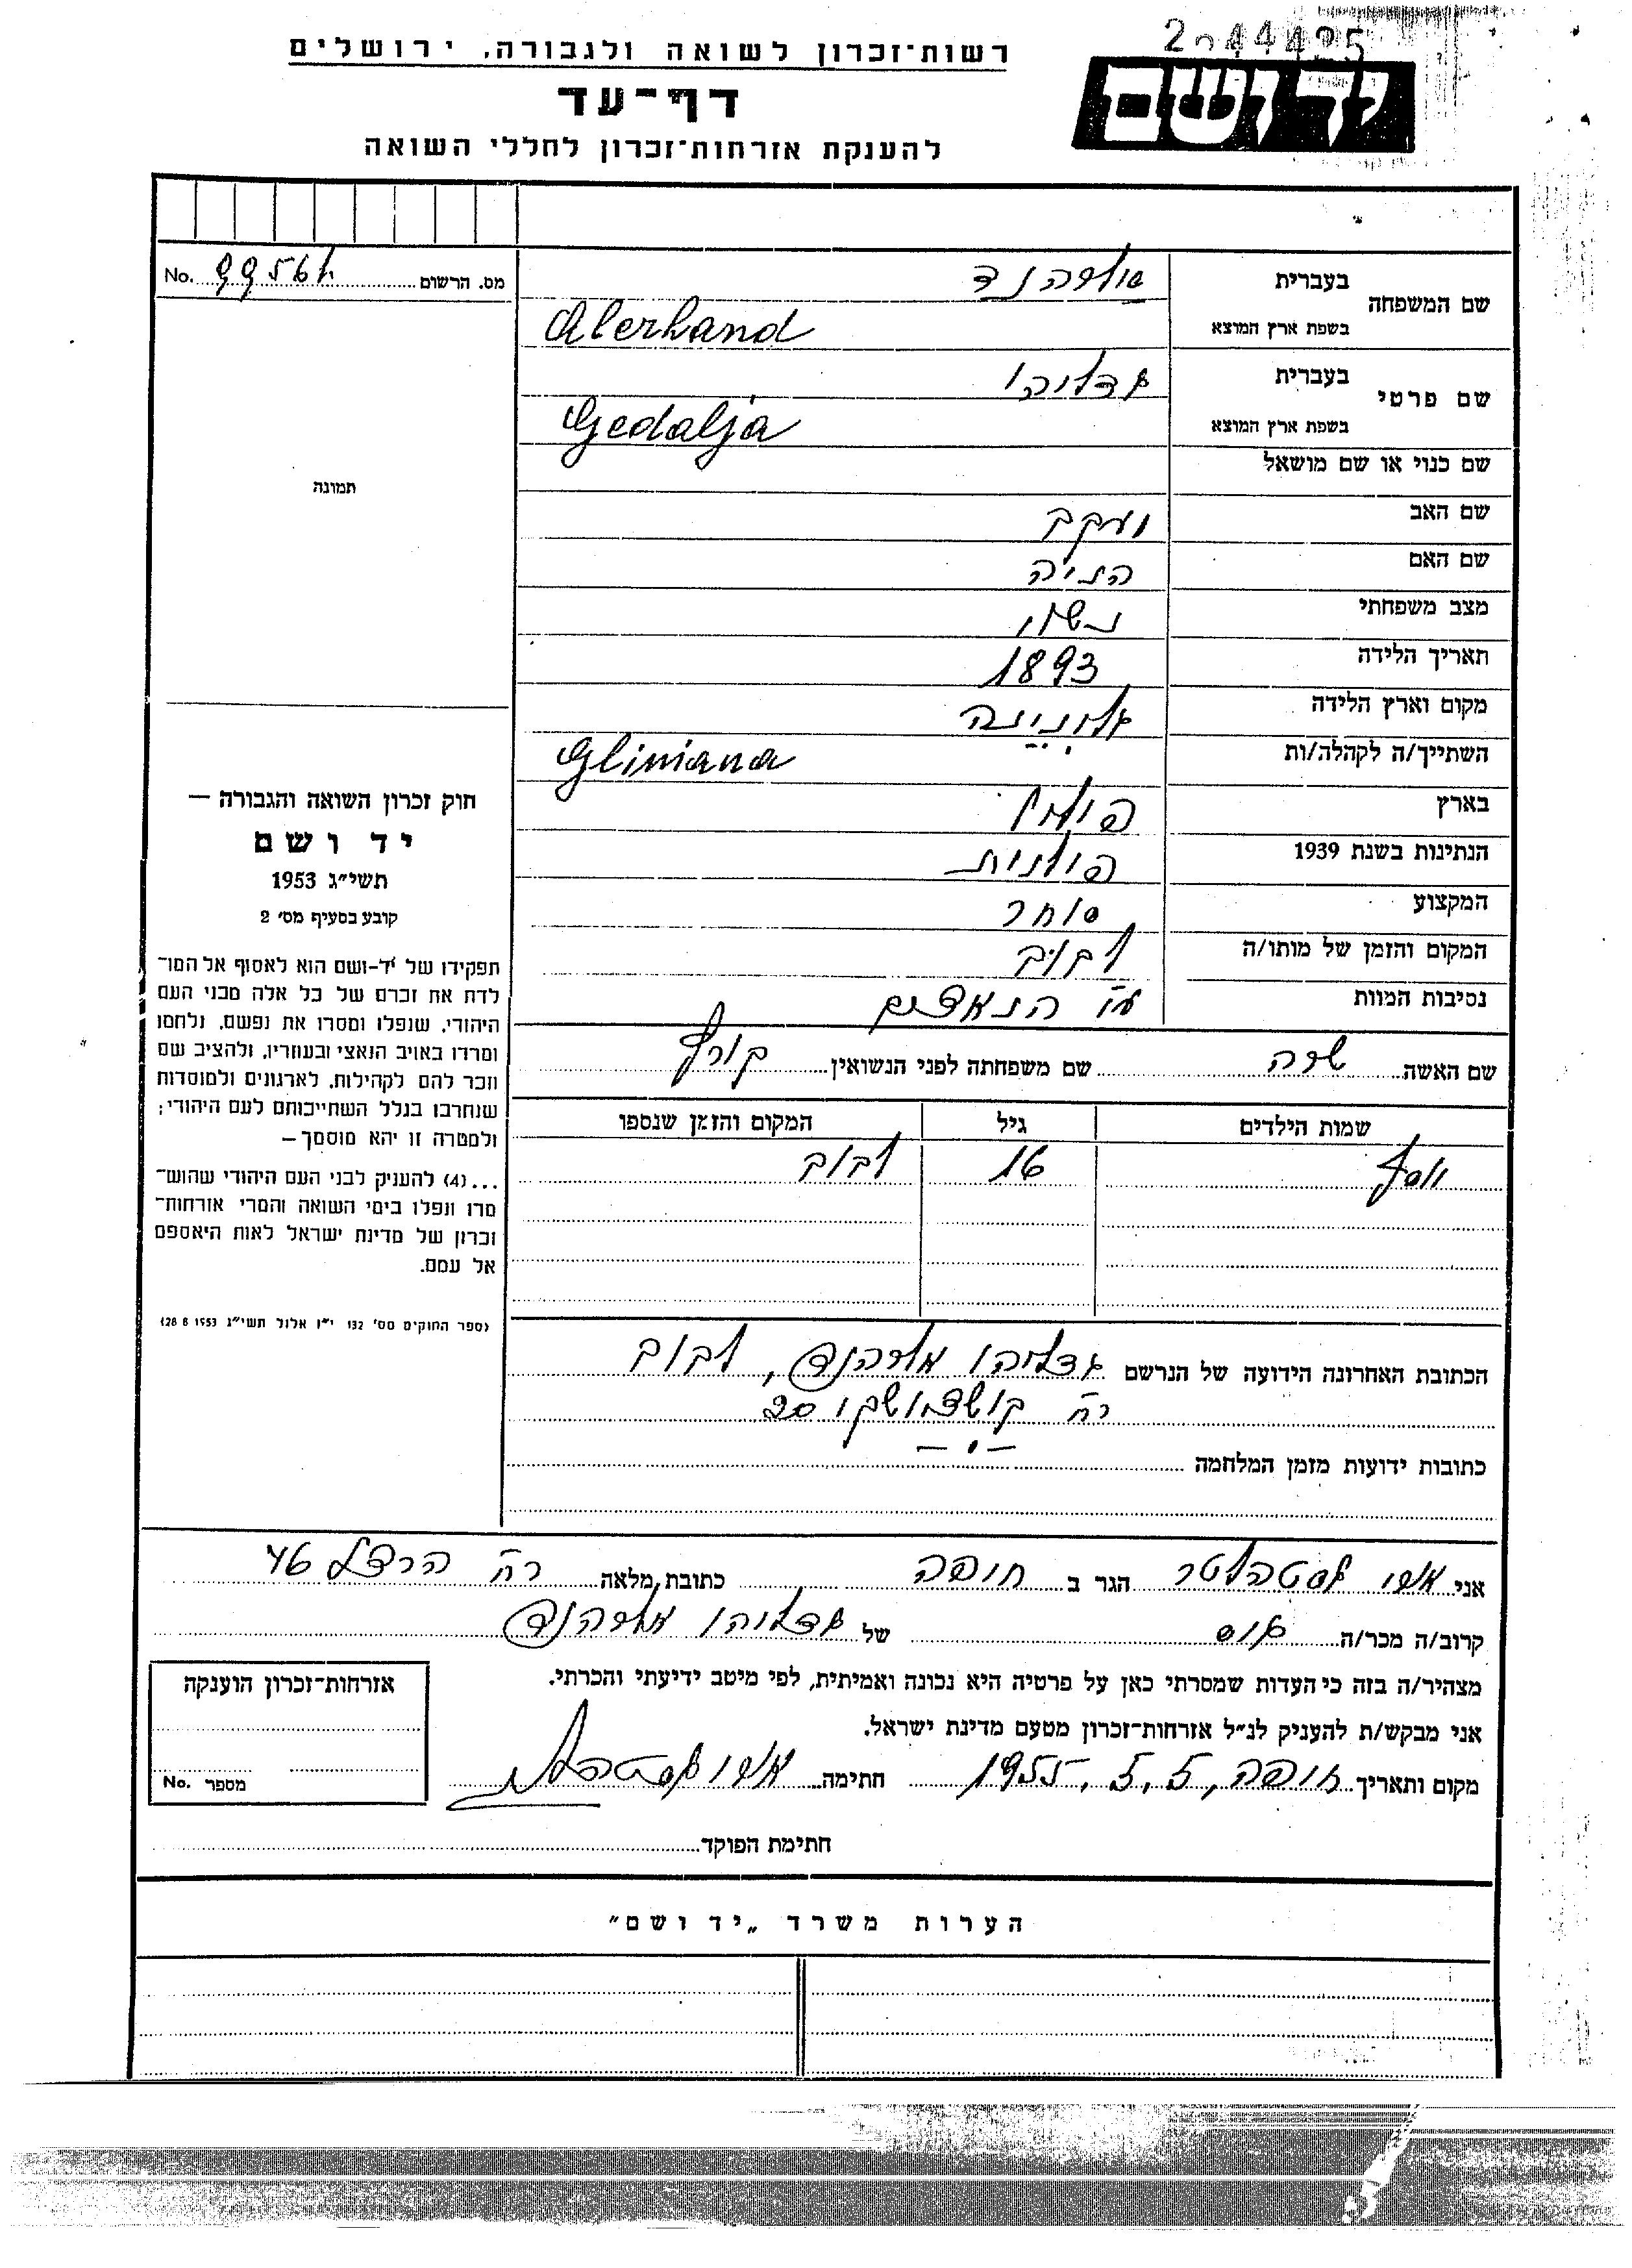 רשות־זכרון לשואה ולגבורה, ירושלים
דף־עד
להענקת אזרחות־זכרון לחללי השואה
יד ושם
מס. הרשום 99561 No.
שם המשפחה
בעברית אלרהנד
בשפת ארץ המוצא Alerhand
שם פרטי
בעברית גדליהו
בשפת ארץ המוצא Gedalja
שם כנוי או שם מושאל
שם האב יעקב
שם האם הניה
מצב משפחתי נשוי
תאריך הלידה 1893
מקום וארץ הלידה גלינינה
השתייך/ה לקהלה/ות Gliniana
בארץ פולין
הנתינות בשנת 1939 פולנית
המקצוע סוחר
המקום והזמן של מותו/ה לבוב
נסיבות המוות ע״י הנאצים
תמונה
חוק זכרון השואה והגבורה —
יד ושם
תשי״ג 1953
קובע בסעיף מס׳ 2
תפקידו של יד-ושם הוא לאסוף אל המו־
לדת את זכרם של כל אלה מבני העם
היהודי, שנפלו ומסרו את נפשם, נלחמו
ומרדו באויב הנאצי ובעוזריו, ולהציב שם
וזכר להם לקהילות, לארגונים ולמוסדות
שנחרבו בגלל השתייכותם לעם היהודי;
ולמטרה זו יהא מוסמך—
...(4) להעניק לבני העם היהודי שהוש־
מדו ונפלו בימי השואה והמרי אזרחות־
זכרון של מדינת ישראל לאות היאספם
אל עמם.
(ספר החוקים מס׳ 132 י״ז אלול תשי״ג 28.8.1953)
שם האשה שרה שם משפחתה לפני הנשואין קורץ
שמות הילדים גיל המקום והזמן שנספו
יוסף 16 לבוב
הכתובת האחרונה הידועה של הנרשם גדליהו אלרהנד, לבוב
רח׳ קושצ׳ושקו 20
כתובות ידועות מזמן המלחמה
אני הגר ב חיפה כתובת מלאה רח׳ הרצל 46
קרוב/ה מכר/ה גיס של גדליהו אלרהנד
מצהיר/ה בזה כי העדות שמסרתי כאן על פרטיה היא נכונה ואמיתית, לפי מיטב ידיעתי והכרתי.
אני מבקש/ת להעניק לנ״ל אזרחות־זכרון מטעם מדינת ישראל.
מקום ותאריך חיפה, 5.5.1955 חתימה
אזרחות־זכרון הוענקה
מספר No.
חתימת הפוקד
הערות משרד „יד ושם”